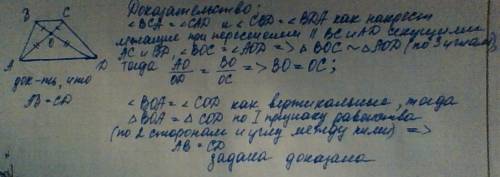 B C
O
A D
док-ть, что
AB=CD
Доказательство:
∠BCA = ∠CAD и ∠CBD = ∠BDA как накрест
лежащие при пересечении || BC и AD секущими
AC и BD, ∠BOC = ∠AOD => △BOC ~ △AOD (по 3 углам),
Тогда AO/OD = BO/OC => BO = OC;
∠BOA = ∠COD как вертикальные, тогда
△BOA = △COD по I признаку равенства
(по 2 сторонам и углу между ними) =>
AB = CD
задача доказана